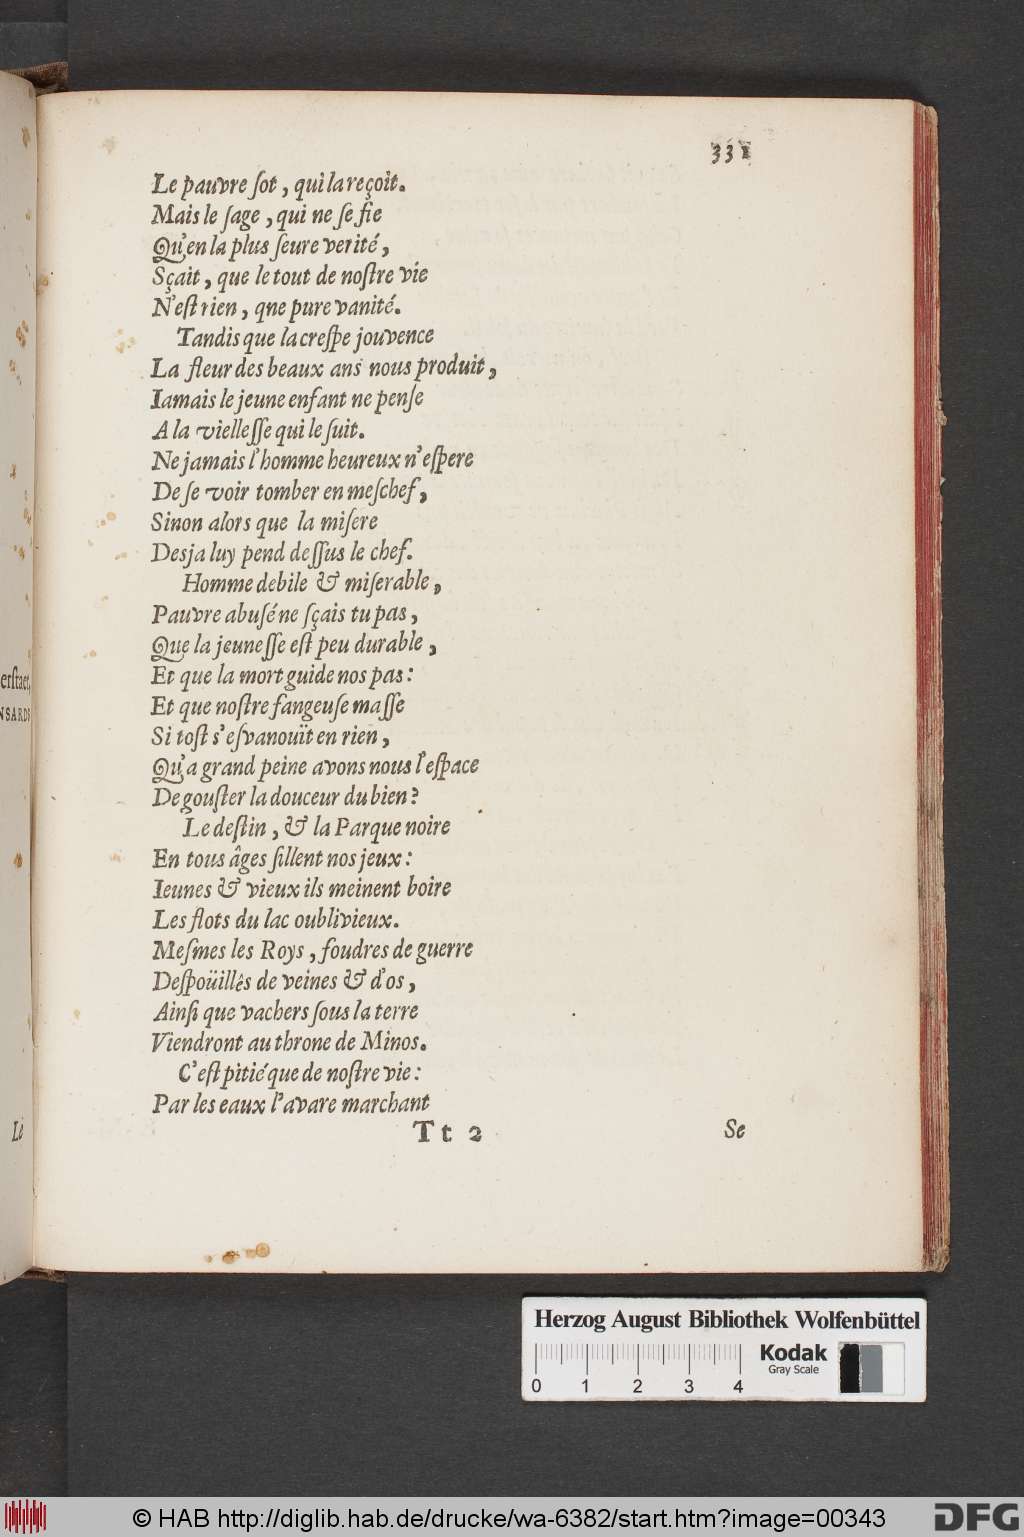 331
Le pauvre ſot, qui la reçoit.
Mais le ſage, qui ne ſe fie
Qu'en la plus ſeure verité,
Sçait, que le tout de noſtre vie
N'eſt rien, qne pure vanité.
Tandis que la creſpe jouvence
La fleur des beaux ans nous produit,
Iamais le jeune enfant ne penſe
A la vielleſſe qui le ſuit.
Ne jamais l'homme heureux n'eſpere
De ſe voir tomber en meſchef,
Sinon alors que la miſere
Desja luy pend deſſus le chef.
Homme debile & miſerable,
Pauvre abuſé ne ſçais tu pas,
Que la jeuneſſe eſt peu durable,
Et que la mort guide nos pas:
Et que noſtre fangeuſe maſſe
Si toſt s'eſvanouït en rien,
Qu'a grand peine avons nous l'eſpace
De gouſter la douceur du bien?
Le deſtin, & la Parque noire
En tous âges ſillent nos jeux:
Ieunes & vieux ils meinent boire
Les flots du lac oublivieux.
Meſmes les Roys, foudres de guerre
Deſpoüillês de veines & d'os,
Ainſi que vachers ſous la terre
Viendront au throne de Minos.
C'eſt pitié que de noſtre vie:
Par les eaux l'avare marchant
Tt 2 Se
erſtaet,
NSARDS
Le
Herzog August Bibliothek Wolfenbüttel
Kodak
Gray Scale
0 1 2 3 4
© HAB http://diglib.hab.de/drucke/wa-6382/start.htm?image=00343
DFG